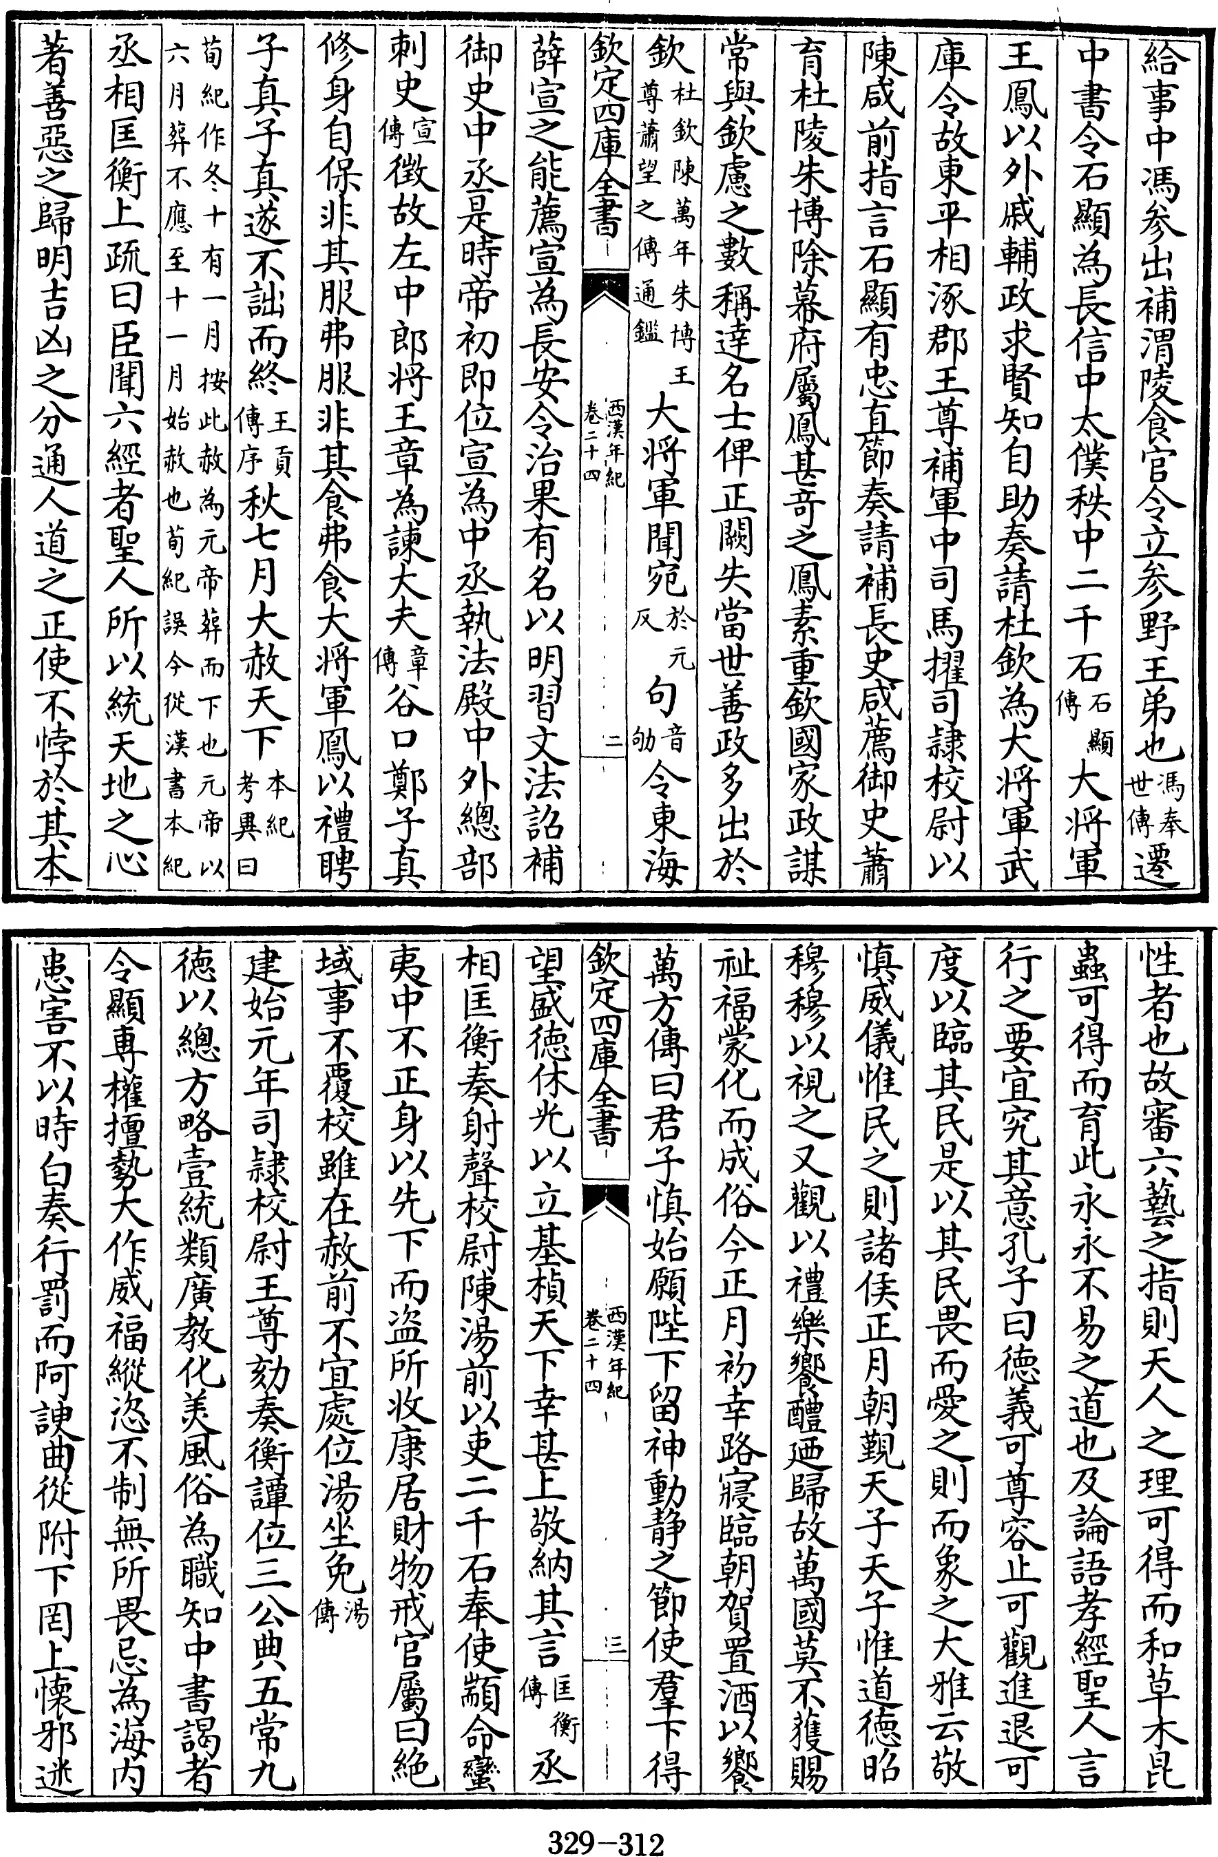 給事中馮參出補渭陵食官令立參野王弟也馮奉世傳遷
中書令石顯為長信中太僕秩中二千石石顯傳大將軍
王鳳以外戚輔政求賢知自助奏請杜欽為大將軍武
庫令故東平相涿郡王尊補軍中司馬擢司隷校尉以
陳咸前指言石顯有忠直節奏請補長史咸薦御史蕭
育杜陵朱博除幕府屬鳳甚奇之鳳素重欽國家政謀
常與欽慮之數稱逹名士俾正闕失當世善政多出於
欽杜欽陳萬年朱博王尊蕭望之傳通鑑大將軍聞宛於元反句音劬令東海
欽定四庫全書
西漢年紀卷二十四
二
薛宣之能薦宣為長安令治果有名以明習文法詔補
御史中丞是時帝初即位宣為中丞執法殿中外總部
刺史宣傳徵故左中郎將王章為諫大夫章傳谷口鄭子真
修身自保非其服弗服非其食弗食大將軍鳳以禮聘
子真子真遂不詘而終王貢傳序秋七月大赦天下本紀考異曰
荀紀作冬十有一月按此赦為元帝葬而下也元帝以
六月葬不應至十一月始赦也荀紀誤今從漢書本紀
丞相匡衡上疏曰臣聞六經者聖人所以統天地之心
著善惡之歸明吉凶之分通人道之正使不悖於其本
性者也故審六藝之指則天人之理可得而和草木昆
蟲可得而育此永永不易之道也及論語孝經聖人言
行之要宜究其意孔子曰德義可尊容止可觀進退可
度以臨其民是以其民畏而愛之則而象之大雅云敬
慎威儀惟民之則諸侯正月朝覲天子天子惟道德昭
穆穆以視之又觀以禮樂饗醴廼歸故萬國莫不獲賜
祉福蒙化而成俗今正月初幸路寢臨朝賀置酒以饗
萬方傳曰君子慎始願陛下留神動静之節使羣下得
欽定四庫全書
西漢年紀卷二十四
三
望盛德休光以立基楨天下幸甚上敬納其言匡衡傳丞
相匡衡奏射聲校尉陳湯前以吏二千石奉使顓命蠻
夷中不正身以先下而盗所收康居財物戒官屬曰絶
域事不覆校雖在赦前不宜處位湯坐免湯傳
建始元年司隷校尉王尊劾奏衡譚位三公典五常九
德以總方略壹統類廣教化美風俗為職知中書謁者
令顯專權擅勢大作威福縱恣不制無所畏忌為海内
患害不以時白奏行罰而阿諛曲從附下罔上懷邪迷
329-312